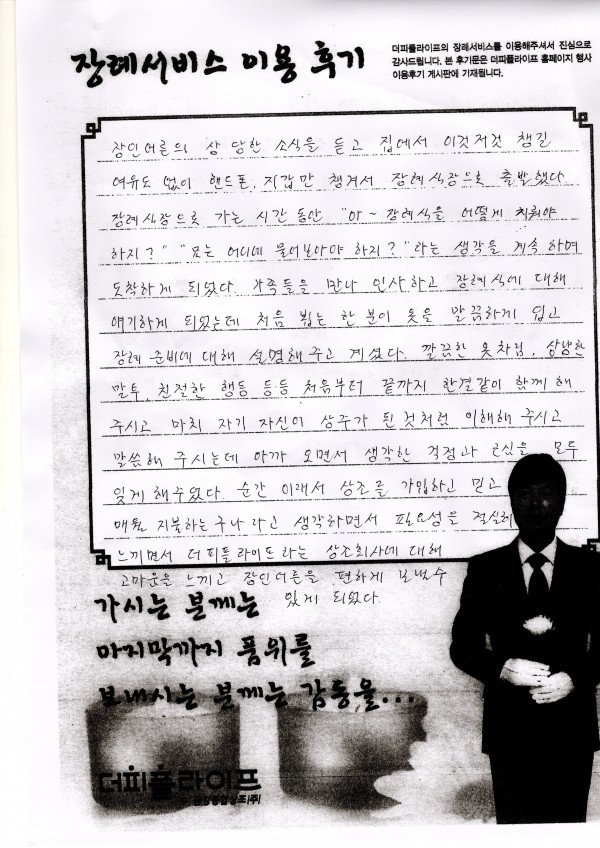 장례서비스 이용 후기
더피플라이프의 장례서비스를 이용해주셔서 진심으로
감사드립니다. 본 후기문은 더피플라이프 홈페이지 행사
이용후기 게시판에 기재됩니다.
장인어른의 상 당한 소식을 듣고 집에서 이것저것 챙길
여유도 없이 핸드폰, 지갑만 챙겨서 장례식장으로 출발했다.
장례식장으로 가는 시간 동안 "아~ 장례식을 어떻게 치뤄야
하지?" "모는 어디에 물어보아야 하지?"라는 생각을 계속 하며
도착하게 되었다. 가족들을 만나 인사하고 장례식에 대해
얘기하게 되었는데 처음 뵙는 한 분이 옷을 말끔하게 입고
장례 준비에 대해 설명해 주고 계셨다. 깔끔한 옷차림, 상냥한
말투, 친절한 행동 등등 처음부터 끝까지 한결같이 함께 해
주시고 마치 자기 자신이 상주가 된 것처럼 이해해 주시고
말씀해 주시는데 아까 오면서 생각한 걱정과 근심을 모두
잊게 해주었다. 순간 이래서 상조를 가입하고 믿고
매월 지불하는구나 라고 생각하면서 필요성을 절실히
느끼면서 더피플라이프라는 상조회사에 대해
고마운을 느끼고 장인어른을 편하게 보낼수
있게 되었다.
가시는 분께는
마지막까지 품위를
보내시는 분께는 감동을...
더피플라이프